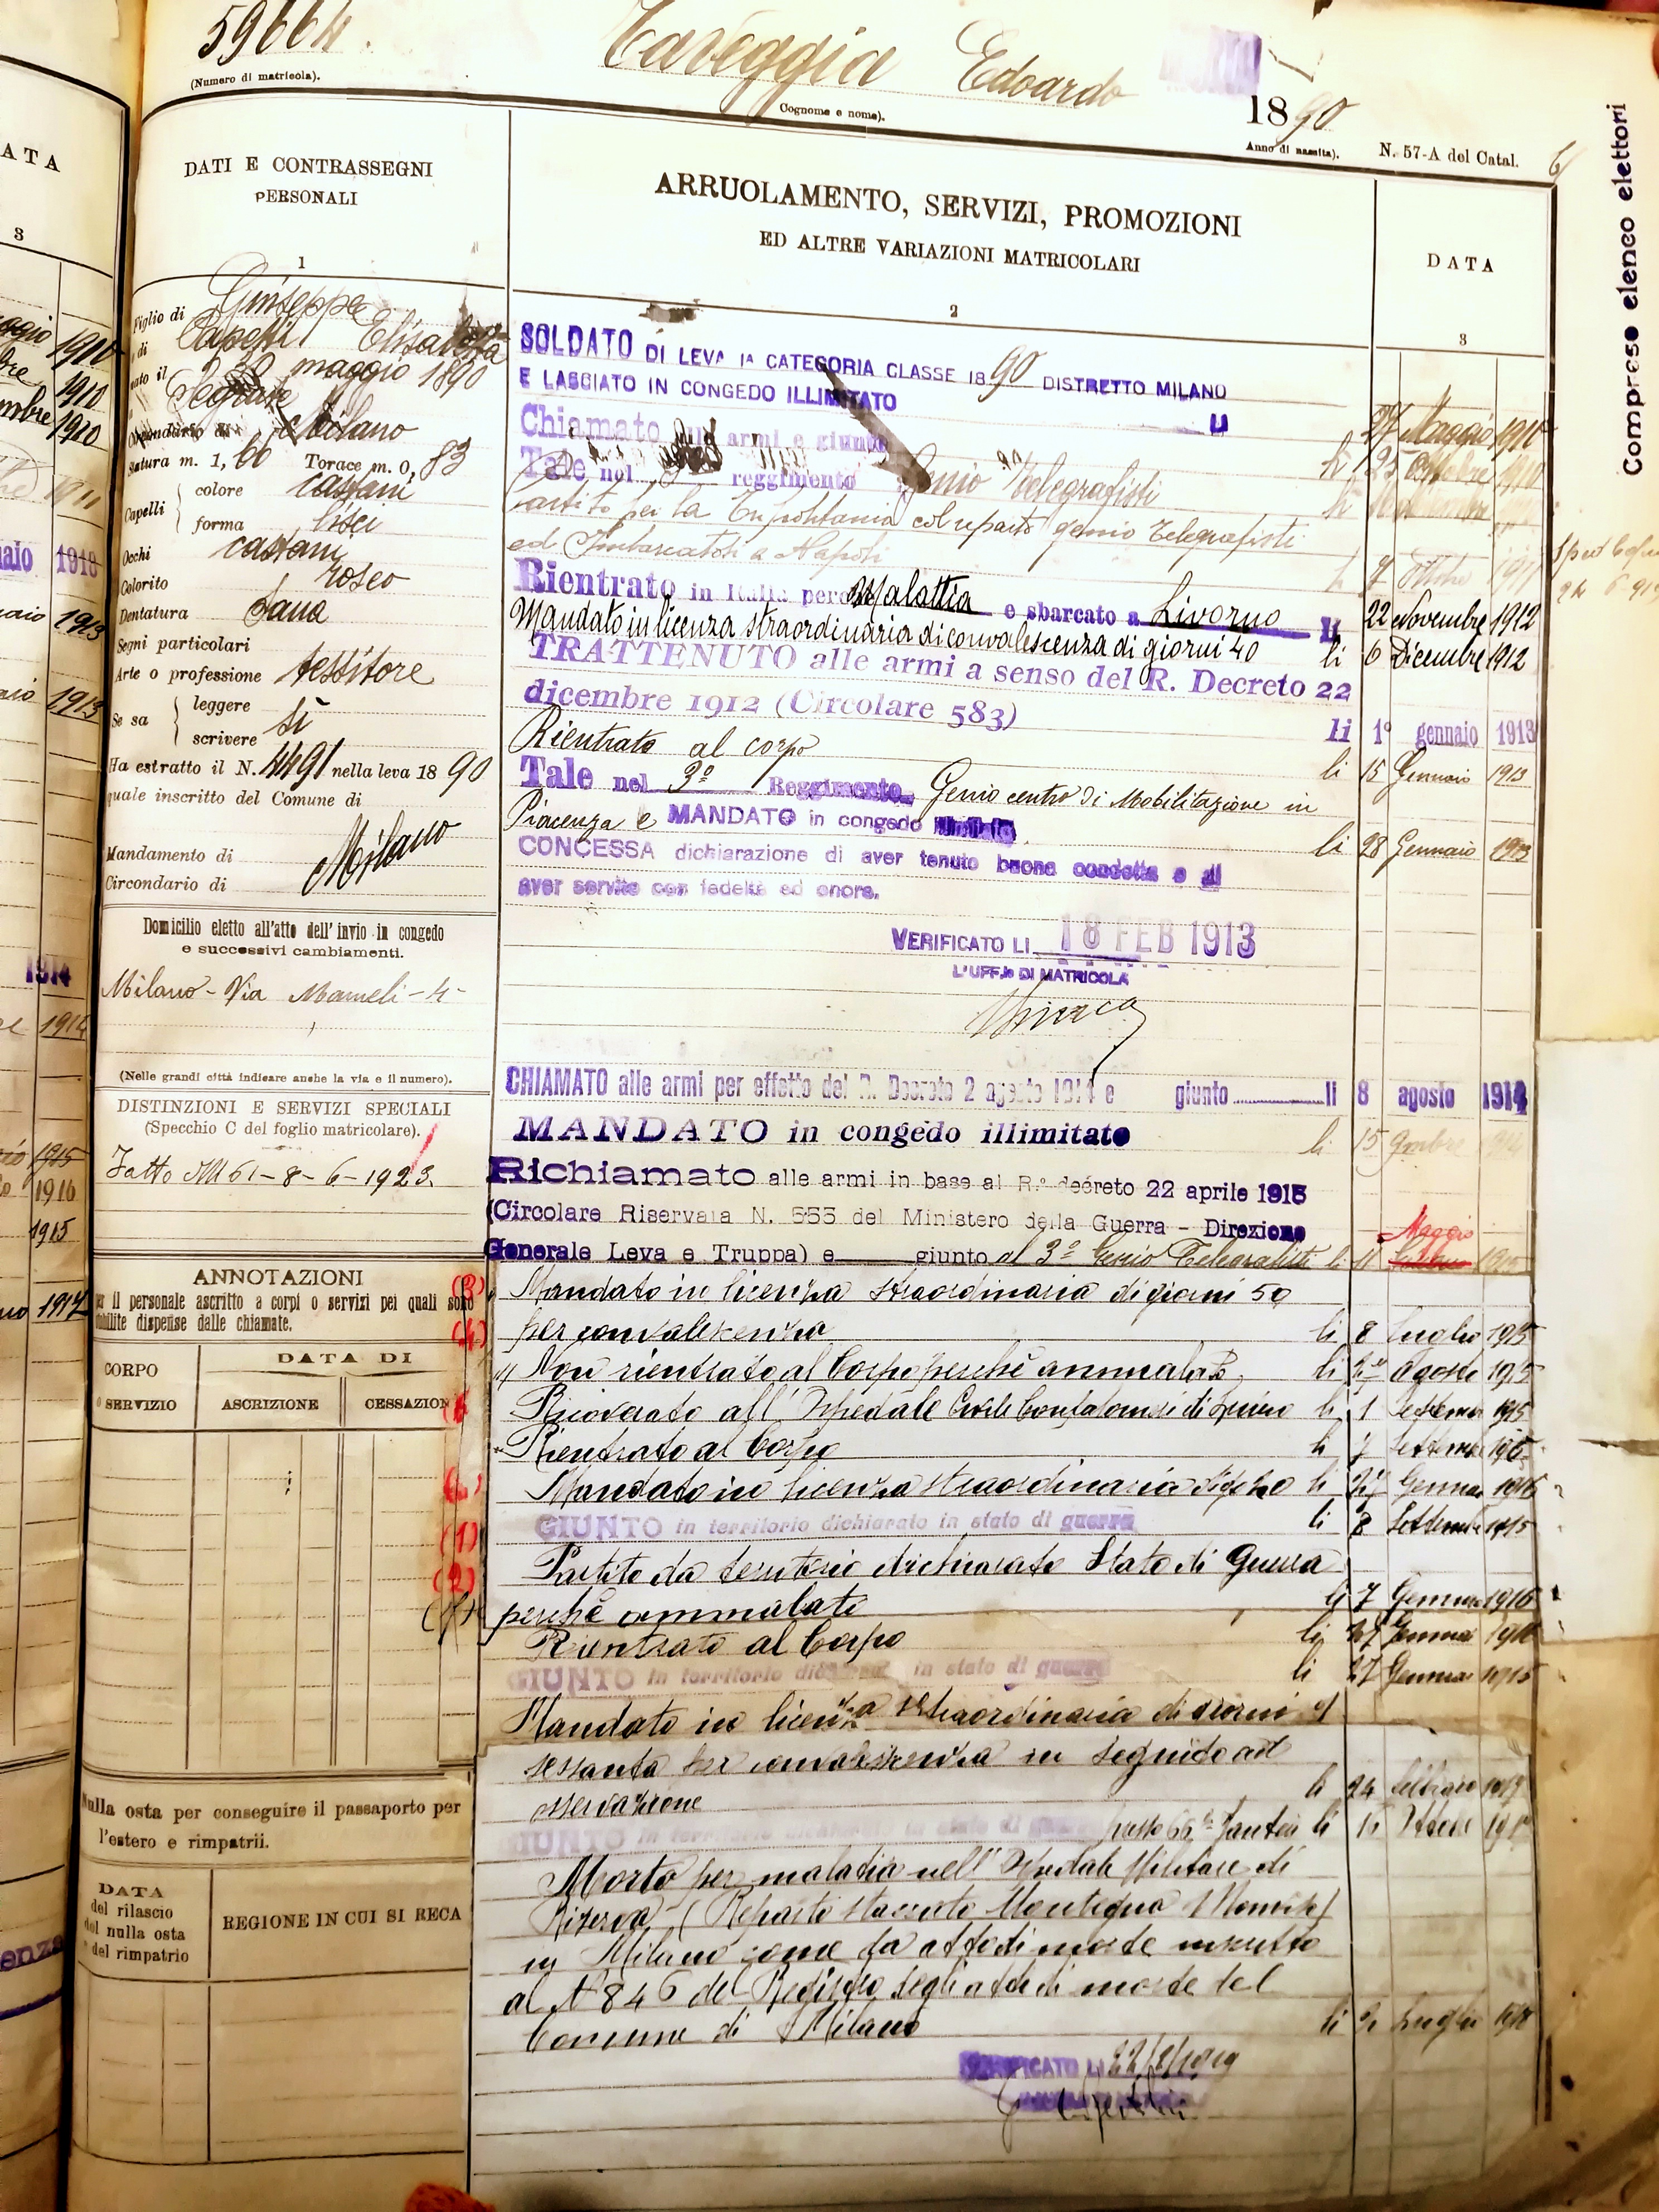 59664.
(Numero di matricola).
Taveggia Edoardo
(Cognome e nome).
1890
Anno di nascita).
N. 57-A del Catal.
Compreso elenco elettori
DATI E CONTRASSEGNI
PERSONALI
1
Figlio di Giuseppe
di Elisabetta
ato il maggio 1890
Circondario di Milano
Statura m. 1,66 Torace m. 0,83
Capelli
colore castani
forma lisci
Occhi castani
Colorito roseo
Dentatura sana
Segni particolari
Arte o professione tessitore
Se sa
leggere
scrivere
sì
Ha estratto il N. 4491 nella leva 1890
quale inscritto del Comune di
Milano
Mandamento di
Circondario di
Domicilio eletto all'atto dell'invio in congedo
e successivi cambiamenti.
Milano - Via Mameli - 4 -
(Nelle grandi città indicare anche la via e il numero).
DISTINZIONI E SERVIZI SPECIALI
(Specchio C del foglio matricolare).
Fatto M 61 - 8 - 6 - 1923.
ANNOTAZIONI
il personale ascritto a corpi o servizi pei quali sono
stabilite dispense dalle chiamate.
CORPO
O SERVIZIO
DATA DI
ASCRIZIONE
CESSAZION
Nulla osta per conseguire il passaporto per
l'estero e rimpatrii.
DATA
del rilascio
del nulla osta
del rimpatrio
REGIONE IN CUI SI RECA
ARRUOLAMENTO, SERVIZI, PROMOZIONI
ED ALTRE VARIAZIONI MATRICOLARI
2
DATA
3
SOLDATO DI LEVA 1A CATEGORIA CLASSE 1890 DISTRETTO MILANO
E LASCIATO IN CONGEDO ILLIMITATO li 27 Maggio 1910
Chiamato alle armi e giunto li 25 Ottobre 1910
Tale nel 3° reggimento Genio Telegrafisti li
Partito per la Tripolitania col reparto genio Telegrafisti
ed Imbarcatosi a Napoli li 7 Ottobre 1911
Rientrato in Italia perchè Malattia e sbarcato a Livorno li 22 Novembre 1912
Mandato in licenza straordinaria di convalescenza di giorni 40 li 6 Dicembre 1912
TRATTENUTO alle armi a senso del R. Decreto 22
dicembre 1912 (Circolare 583) li 1° gennaio 1913
Rientrato al corpo li 15 Gennaio 1913
Tale nel 3° Reggimento Genio centro di Mobilitazione in
Piacenza e MANDATO in congedo illimitato li 28 Gennaio 1913
CONCESSA dichiarazione di aver tenuto buona condotta e di
aver servito con fedeltà ed onore.
VERIFICATO LI 18 FEB 1913
L'UFF.le DI MATRICOLA
CHIAMATO alle armi per effetto del R. Decreto 2 agosto 1914 e giunto li 8 agosto 1914
MANDATO in congedo illimitato li 15 9mbre 1914
Richiamato alle armi in base al R.° decreto 22 aprile 1915
(Circolare Riservata N. 555 del Ministero della Guerra - Direzione
Generale Leva e Truppa) e giunto al 3° Genio Telegrafisti li 11 Maggio 1915
Mandato in licenza straordinaria di giorni 50
per convalescenza li 8 luglio 1915
Non rientrato al Corpo perchè ammalato li agosto 1915
Ricoverato all'Ospedale Civile li 1 Settembre 1915
Rientrato al Corpo li 7 Settembre 1915
Mandato in licenza straordinaria li Gennaio 1916
GIUNTO in territorio dichiarato in stato di guerra li 8 Settembre 1915
Partito da territorio dichiarato Stato di Guerra
perchè ammalato li 7 Gennaio 1916
Rientrato al Corpo li 27 Gennaio 1916
GIUNTO in territorio dichiarato in stato di guerra li 27 Gennaio 1916
Mandato in licenza straordinaria di giorni
sessanta per convalescenza in seguito ad
osservazione li 24 febbraio 1917
GIUNTO in territorio dichiarato in stato di guerra presso 66° Fanteria li
Morto per malattia nell'Ospedale Militare di
Riserva (Reparto staccato
in Milano come da atto di morte inscritto
al N° 846 del Registro degli atti di morte del
Comune di Milano li 2 Luglio 1918
VERIFICATO LI